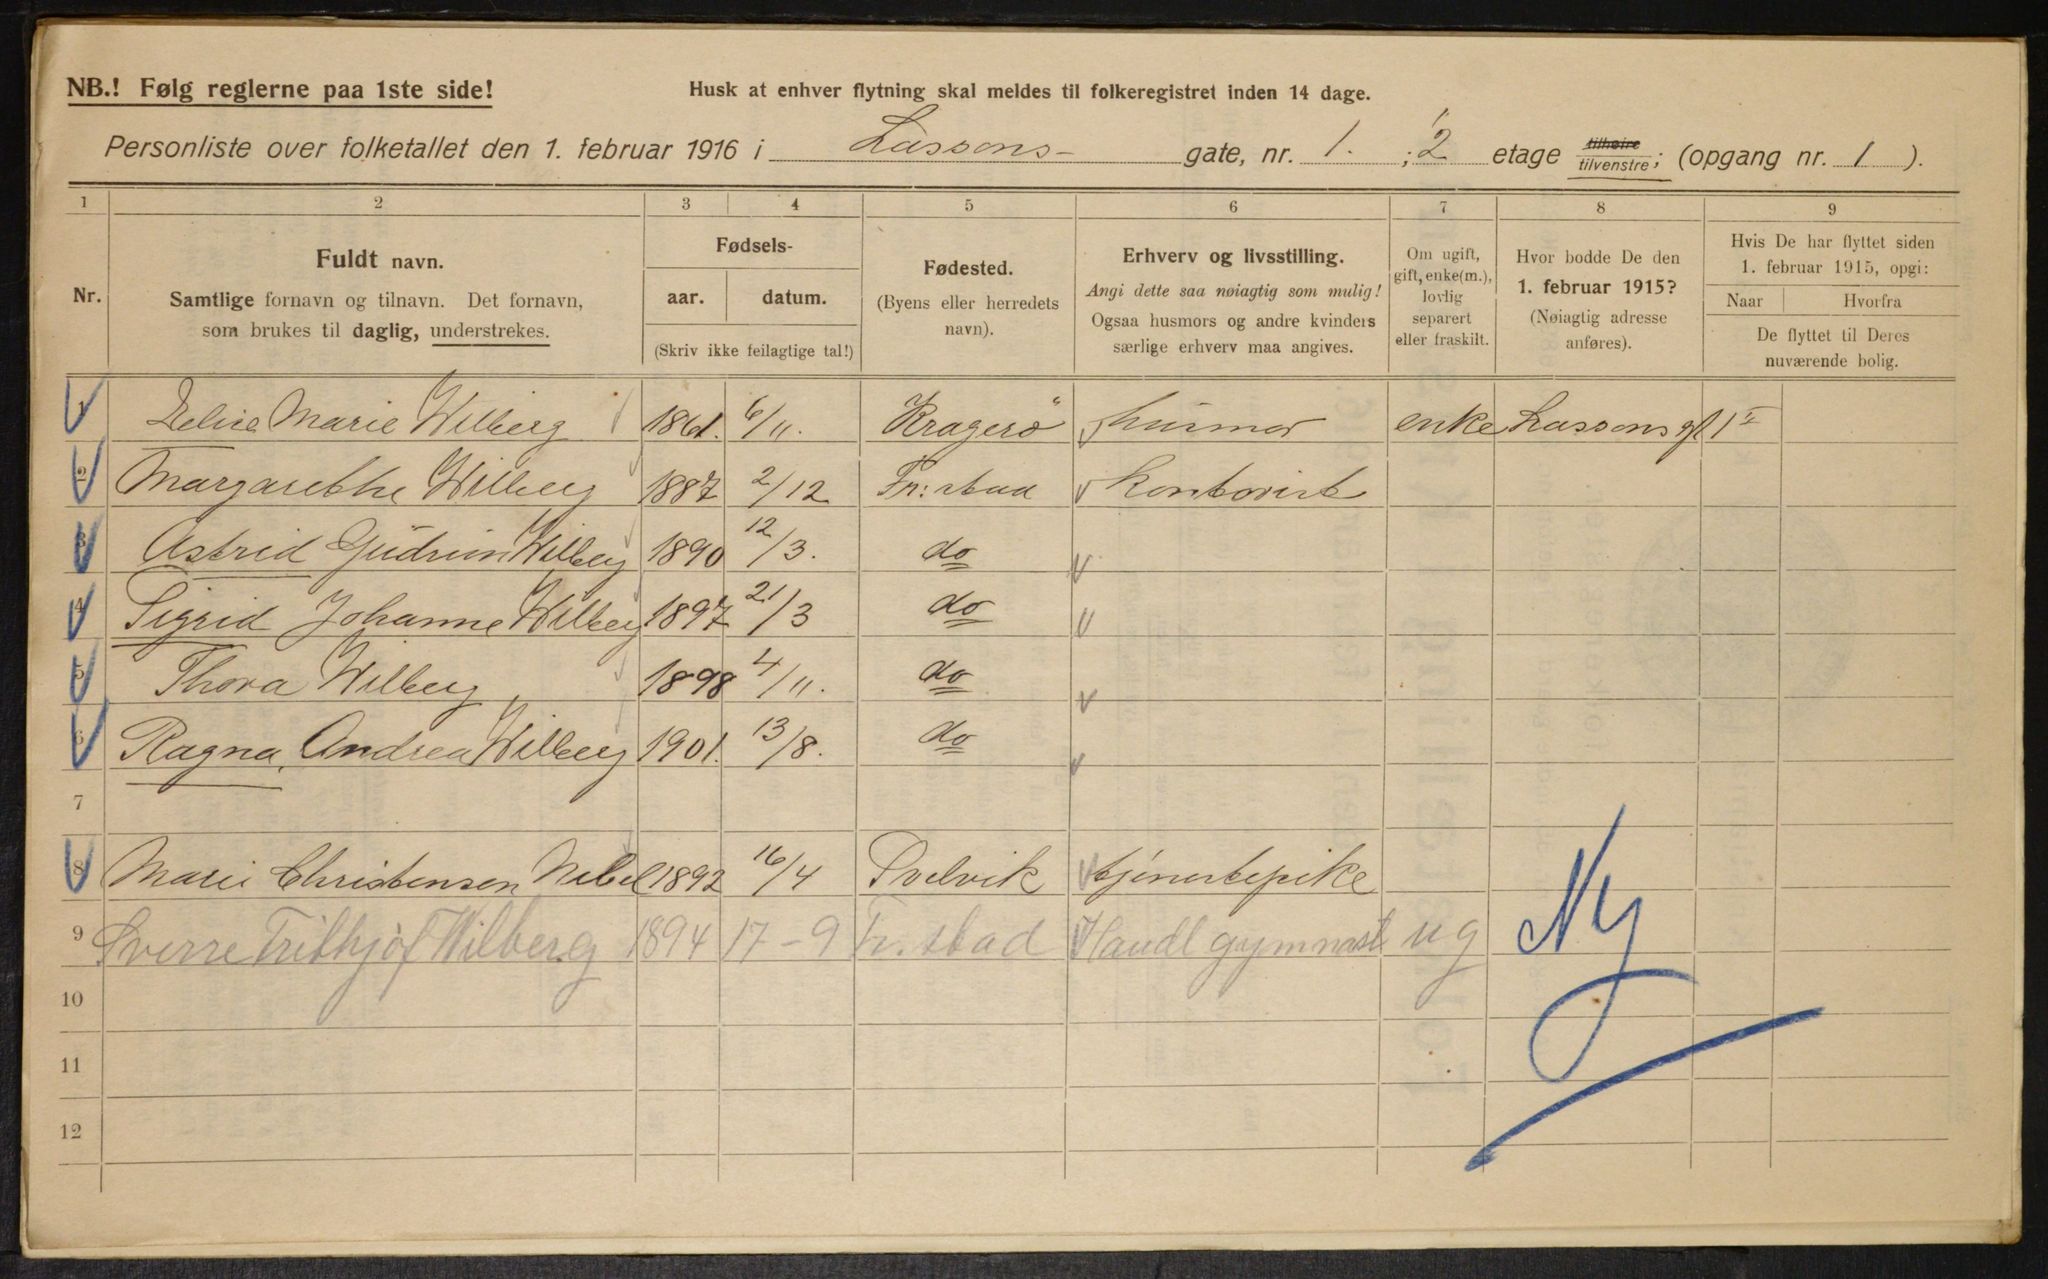 NB.! Følg reglerne paa 1ste side!
Husk at enhver flytning skal meldes til folkeregistret inden 14 dage.
Personliste over folketallet den 1. februar 1916 i Lassons- gate, nr. 1. ; 2 etage tilhøire tilvenstre; (opgang nr. 1 ).
1 2 3 4 5 6 7 8 9
Nr.
Fuldt navn.
Samtlige fornavn og tilnavn. Det fornavn,
som brukes til daglig, understrekes.
Fødsels-
aar. datum.
(Skriv ikke feilagtige tal!)
Fødested.
(Byens eller herredets
navn).
Erhverv og livsstilling.
Angi dette saa nøiagtig som mulig!
Ogsaa husmors og andre kvinders
særlige erhverv maa angives.
Om ugift,
gift, enke(m.),
lovlig
separert
eller fraskilt.
Hvor bodde De den
1. februar 1915?
(Nøiagtig adresse
anføres).
Hvis De har flyttet siden
1. februar 1915, opgi:
Naar Hvorfra
De flyttet til Deres
nuværende bolig.
1 Marie Wilberg 1861. 6/11. Kragerö husmor enke Lassons gt 1
2 Margarethe Wilberg 1887 2/12 Fr: stad kontorist
3 Astrid Gudrun Wilberg 1890 12/3. do
4 Sigrid Johanne Wilberg 1897 21/3 do
5 Thora Wilberg 1898 4/11. do
6 Ragna Andrea Wilberg 1901. 13/8. do
7
8 Marie Christensen Nebel 1892 16/4 Svelvik tjenestepike
9 Sverre Frithjof Wilberg 1894 17-9 Fr. stad Handl gymnast ug
Ny
10
11
12